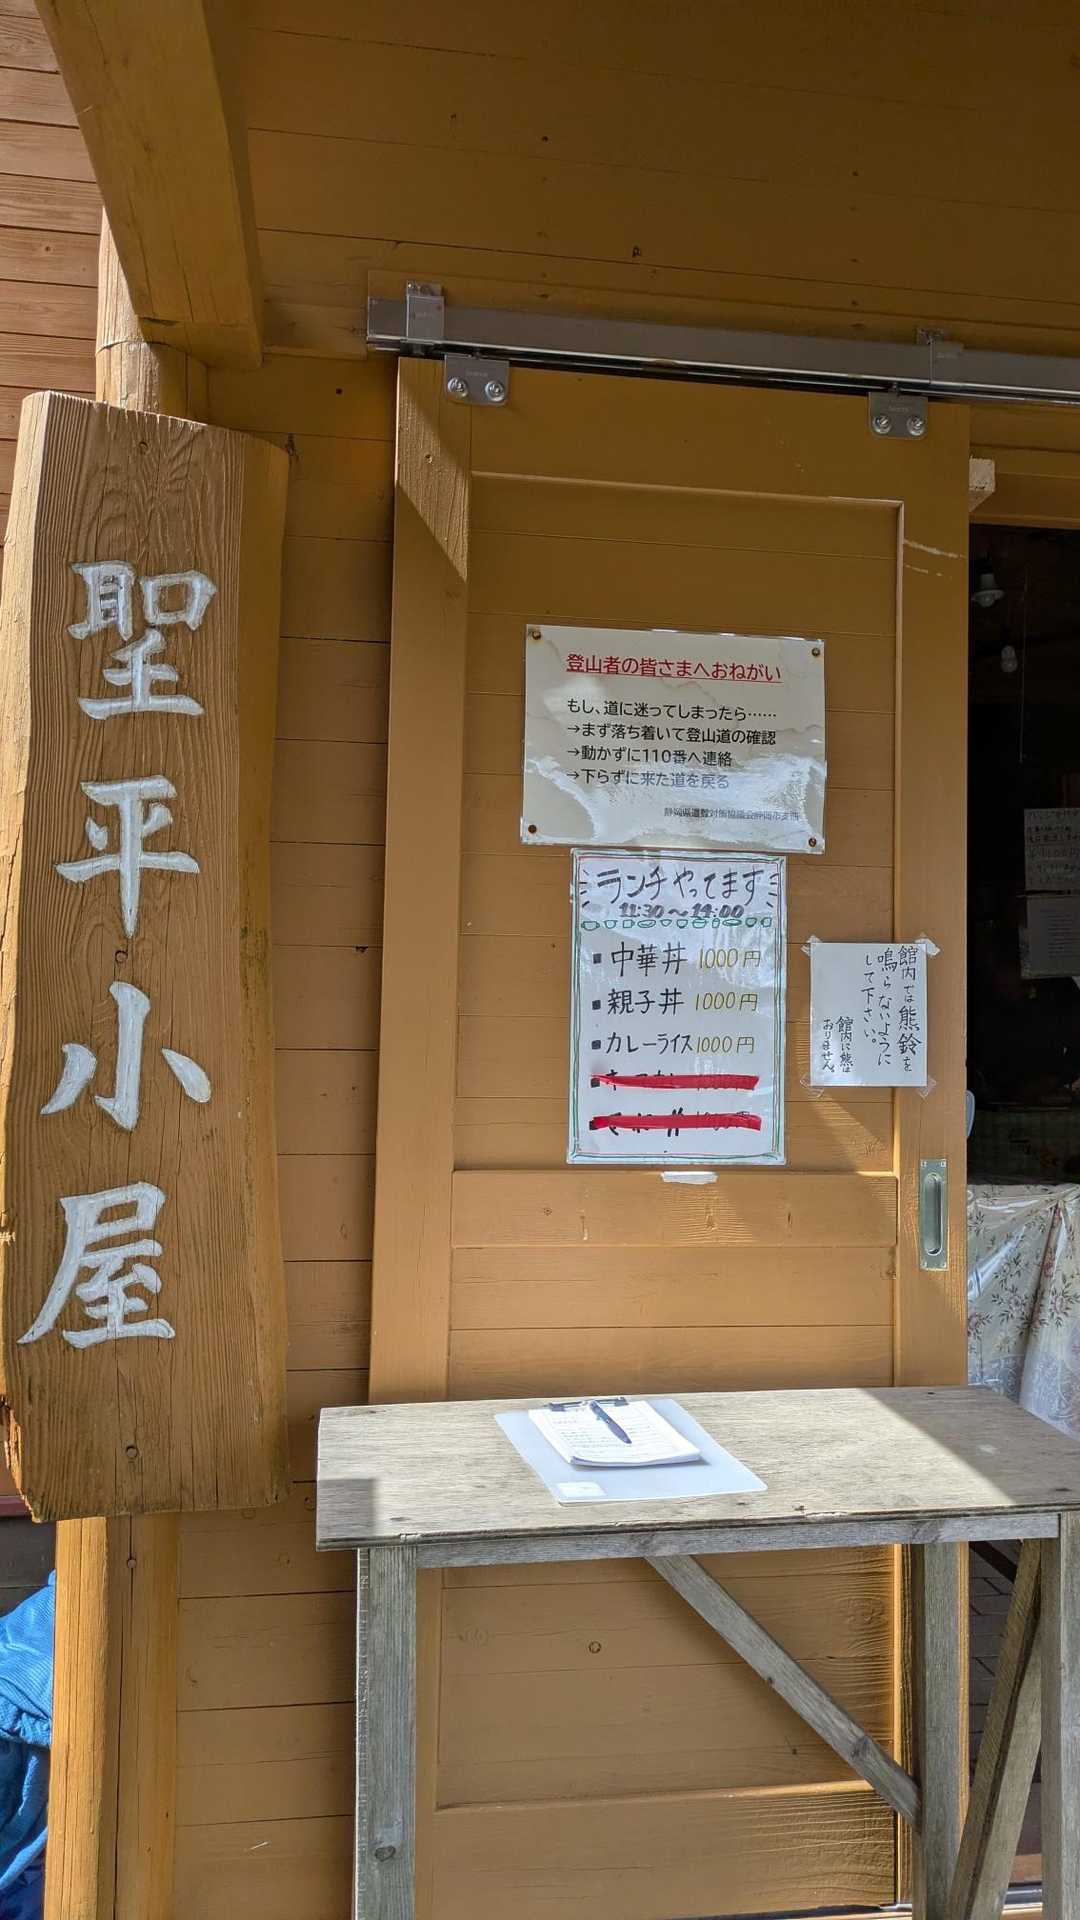 聖平小屋
登山者の皆さまへおねがい
もし、道に迷ってしまったら……
→まず落ち着いて登山道の確認
→動かずに110番へ連絡
→下らずに来た道を戻る
静岡県遭難対策協議会静岡市支部
ランチやってます
11:30～14:00
■中華丼 1000円
■親子丼 1000円
■カレーライス 1000円
館内では熊鈴を
鳴らないように
して下さい。
館内に熊は
おりません。